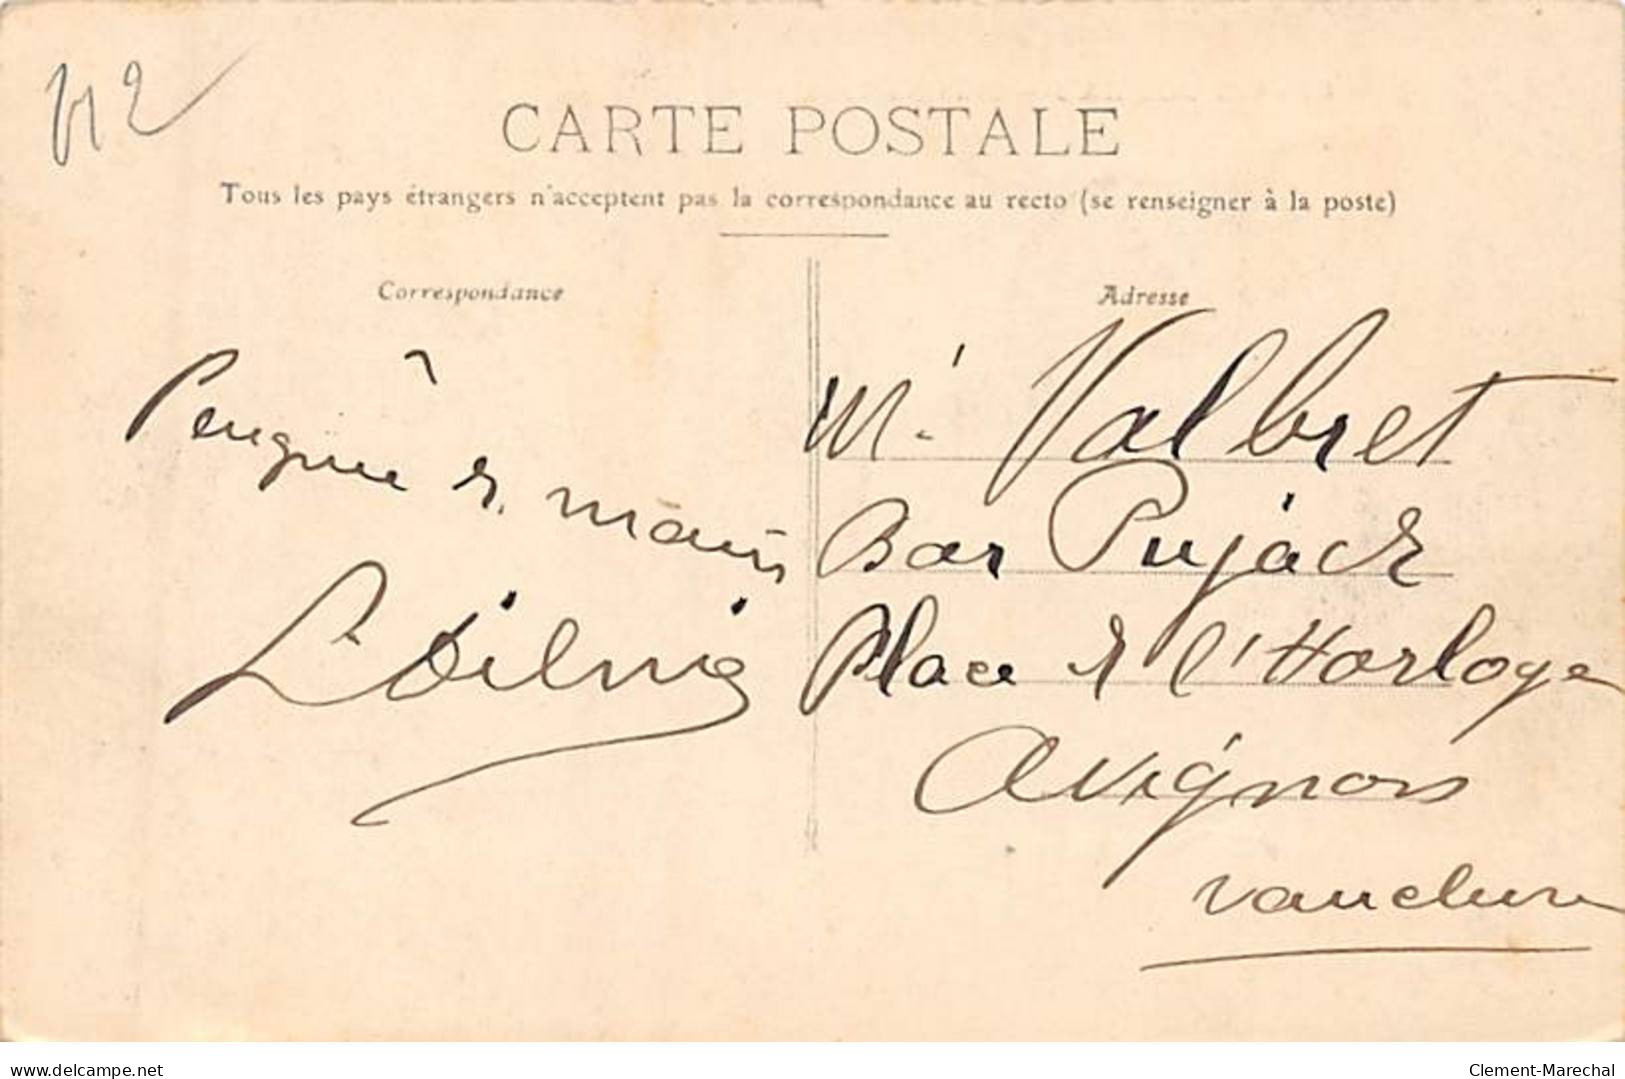 CARTE POSTALE
Tous les pays étrangers n'acceptent pas la correspondance au recto (se renseigner à la poste)
Correspondance
Adresse
main
Mr Valbret
Bar Pujade
Place de l'Horloge
Avignon
Vaucluse
delcampe.net
Clement-Marechal